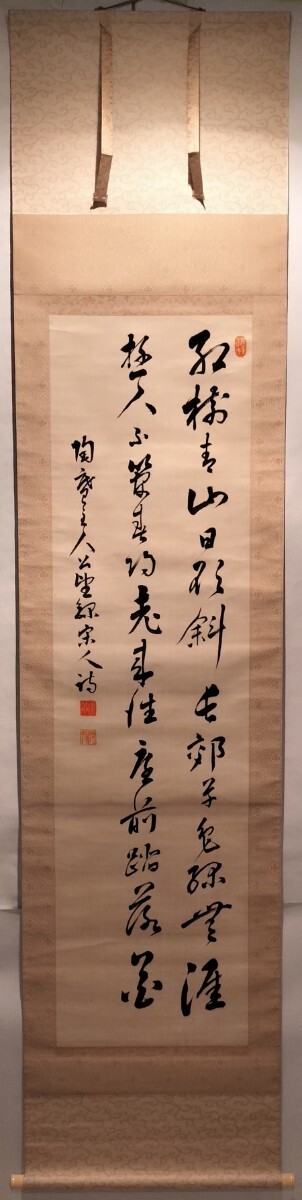 紅樹青山日欲斜長郊草色緑無涯
遊人不管春将老来往亭前踏落花
陶庵主人公望録宋人詩